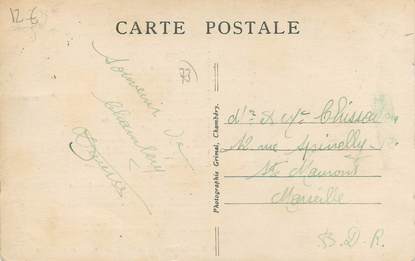 12-6
CARTE POSTALE
Souvenir de
Chambéry
73
Photographie Grimal, Chambéry.
Mr & Me
12 rue Spinelly
St Mauront
Marseille
B.D.R.